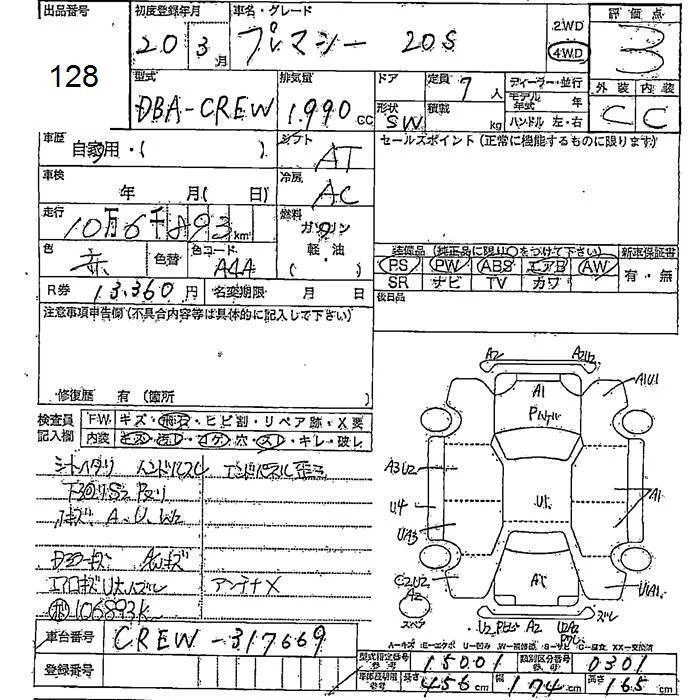 出品番号 初度登録年月 車名・グレード 評価点
128
20 3月 プレマシー 20S 2WD 4WD 3
型式 排気量 ドア 定員 7人 ディーラー・並行 外装 内装
DBA-CREW 1.990cc 形状 SW 積載 kg モデル年式 年 ハンドル 左・右 C C
車歴 自家用・( ) シフト AT セールスポイント(正常に機能するものに限ります)
車検 年 月( 日) 冷房 AC
走行 10万6千893km 燃料 ガソリン
軽・油
( )
色 赤 色替 色コード A4A
装備品(純正品に限り○をつけて下さい) 新車保証書
PS PW ABS エアB AW 有・無
SR ナビ TV カワ
R券 13.360円 名変期限 月 日 後日品
注意事項申告欄(不具合内容等は具体的に記入して下さい)
修復歴 有(箇所 )
検査員記入欄 FW キズ・飛石・ヒビ割・リペア跡・X要
内装 キズ・汚レ・コゲ・穴・スレ・キレ・破レ
シートヘタリ ハンドルスレ
A.U.W2
アンテナX
106893K
A2 A2U2
A1 A1U1
A3U2 A1
U4 U1
UA3
C2U2 A2 A1 U1A1
スペア U2 A2 U2A2 ズレ
A-キズ E-エクボ U-凹み W-補修跡 S-サビ C-腐食 XX-交換済
車台番号 CREW-317669
型式指定番号 参考 15001 類別区分番号 参考 0301
登録番号
車体長明細 参考 長さ 456cm 幅 174cm 高さ 165cm